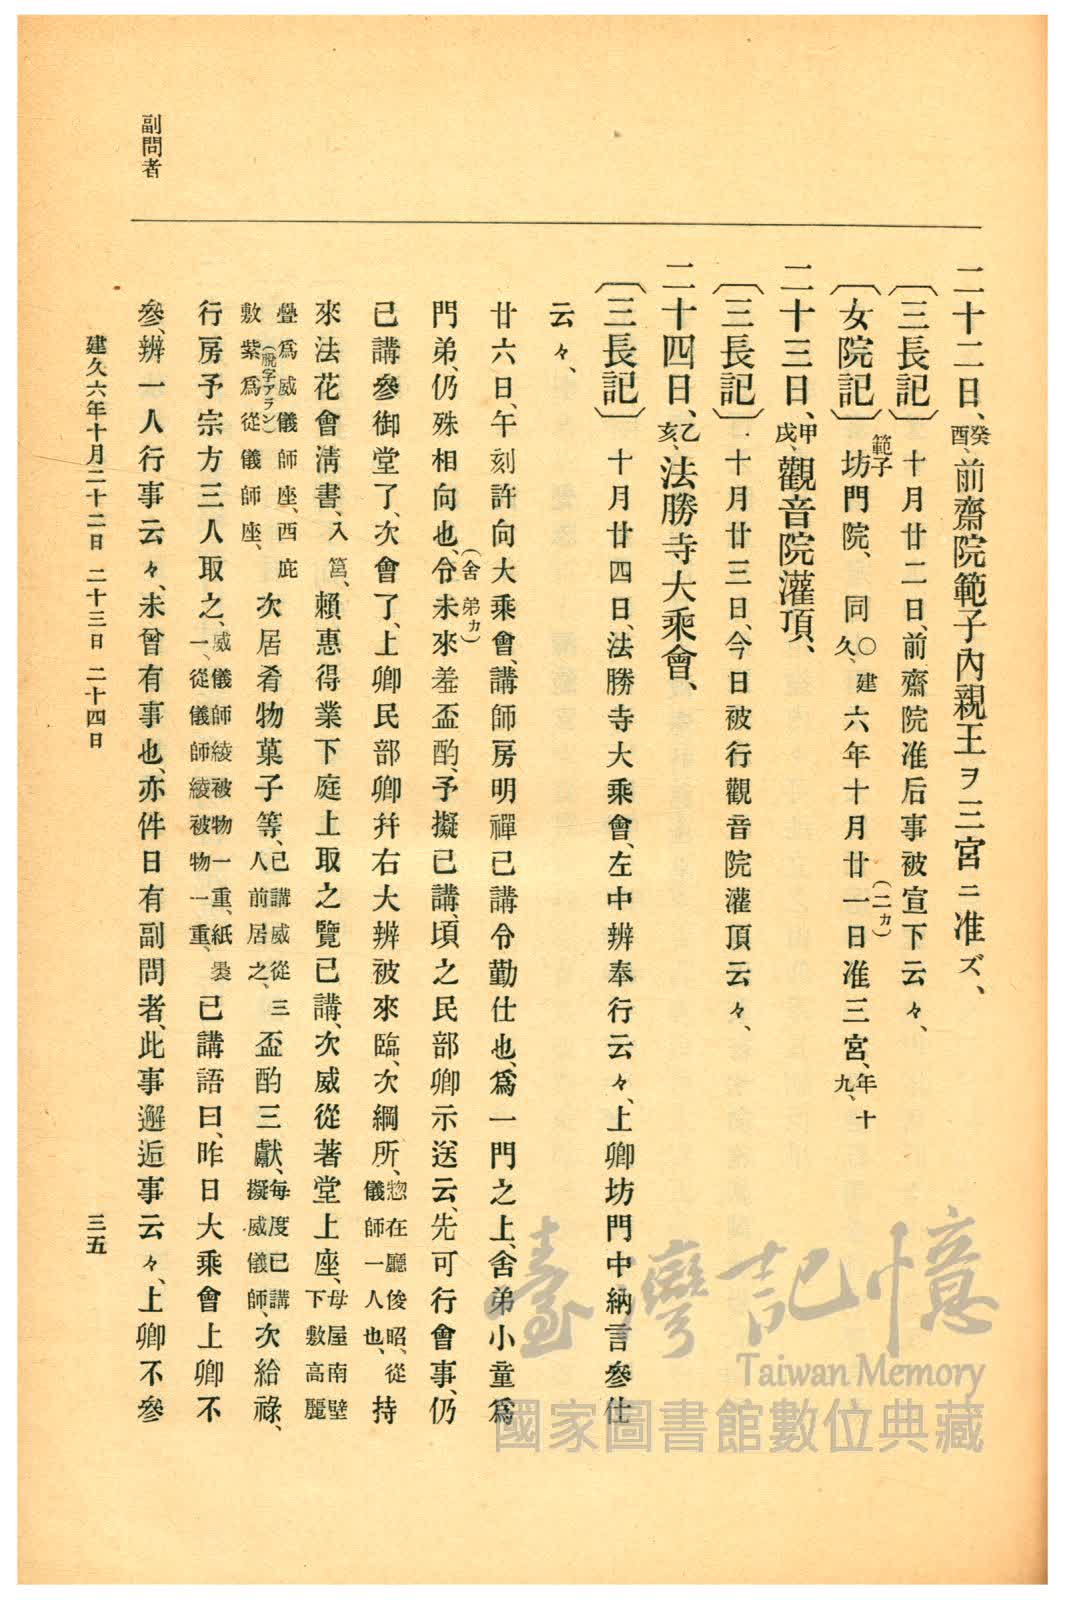 副問者
二十二日、癸酉、前齋院範子內親王ヲ三宮ニ准ズ、
〔三長記〕十月廿二日、前齋院准后事被宣下云々、
〔女院記〕範子坊門院、同〇建久、六年十月廿一(二カ)日准三宮、年十九、
二十三日、甲戌、觀音院灌頂、
〔三長記〕十月廿三日、今日被行觀音院灌頂云々、
二十四日、乙亥、法勝寺大乘會、
〔三長記〕十月廿四日、法勝寺大乘會、左中辨奉行云々、上卿坊門中納言參仕
云々、
廿六日、午刻許向大乘會、講師房明禪已講令勤仕也、爲一門之上、舍弟小童爲
門弟、仍殊相向也、令未(舍弟カ)來羞盃酌、予擬已講、頃之民部卿示送云、先可行會事、仍
已講參御堂了、次會了、上卿民部卿幷右大辨被來臨、次綱所、惣在廳俊昭、從儀師一人也、持
來法花會淸書、入筥、賴惠得業下庭上取之覽已講、次威從著堂上座、母屋南壁下敷高麗
疊爲威儀師座、西庇敷紫(脫字アラン)爲從儀師座、次居肴物菓子等、已講威從三人前居之、盃酌三獻、每度已講擬威儀師、次給祿、
行房予宗方三人取之、威儀師綾被物一重、紙裹一、從儀師綾被物一重、已講語曰、昨日大乘會上卿不
參、辨一人行事云々、未曾有事也、亦件日有副問者、此事邂逅事云々、上卿不參
建久六年十月二十二日 二十三日 二十四日
三五
臺灣記憶
Taiwan Memory
國家圖書館數位典藏